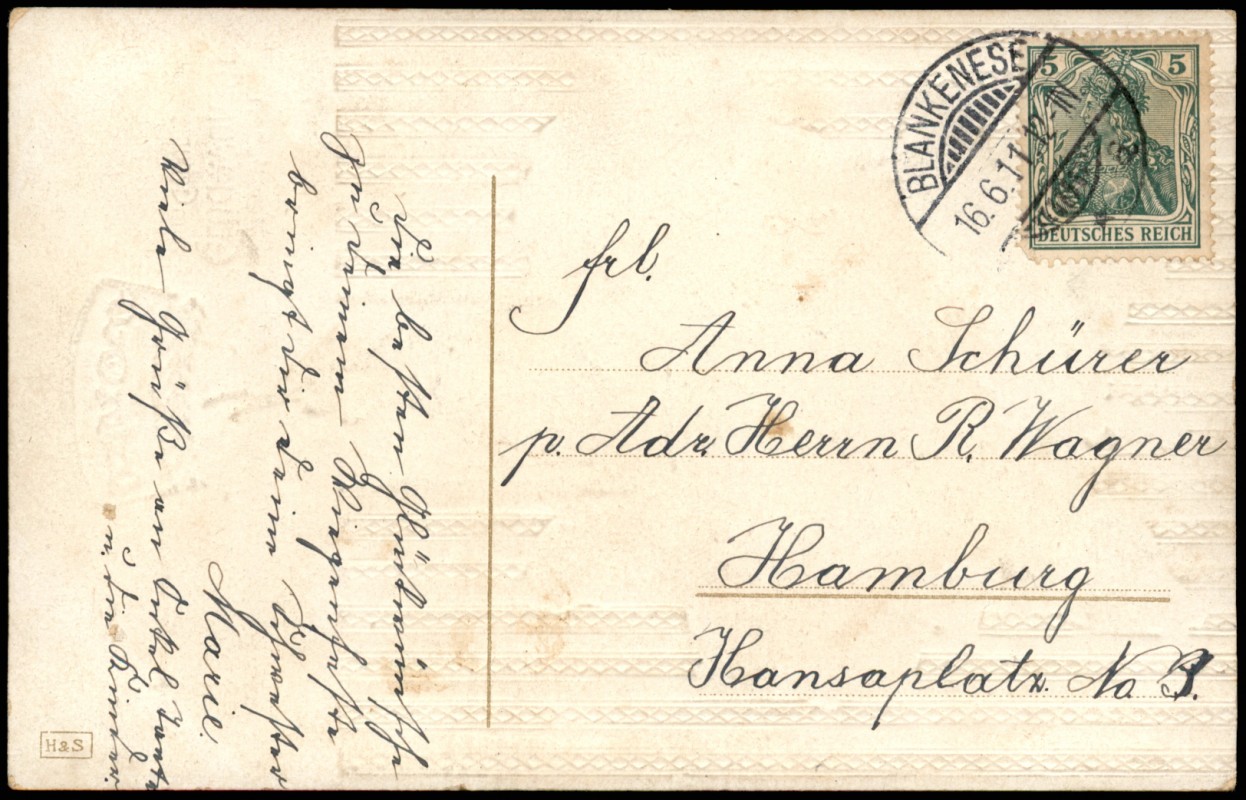 Die besten Glückwünsche
zu deinem Wiegenfeste
bringt dir deine Schwester
Marie.
Viele Grüße an Onkel Tante
u. die Kinder.
H&S
BLANKENESE
16.6.11.12-1N
5 5
DEUTSCHES REICH
Frl.
Anna Schürer
p. Adr. Herrn R. Wagner
Hamburg
Hansaplatz No 3.